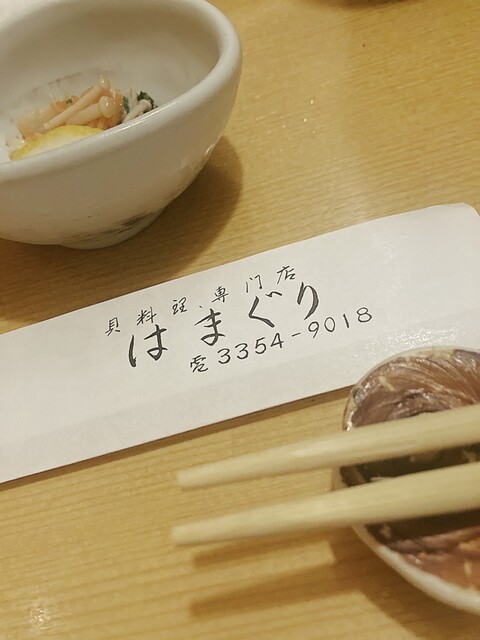 貝料理、専門店
はまぐり
☎3354-9018